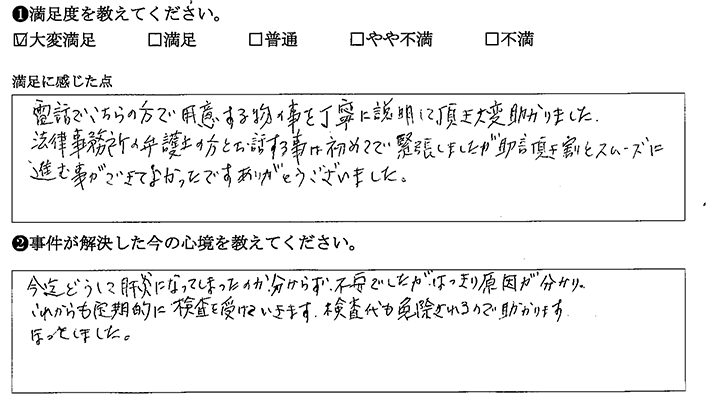 ❶満足度を教えてください。
☑大変満足 □満足 □普通 □やや不満 □不満
満足に感じた点
電話でこちらの方で用意する物の事を丁寧に説明して頂き大変助かりました.
法律事務所の弁護士の方とお話する事は初めてで緊張しましたが助言頂き割とスムーズに
進む事ができてよかったですありがとうございました。
❷事件が解決した今の心境を教えてください。
今迄どうして肝炎になってしまったのか分からず、不安でしたが、はっきり原因が分かり。
これからも定期的に検査を受けていきます、検査代も免除されるので助かります
ほっとしました。